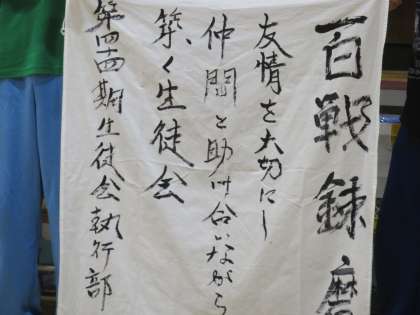 百戦錬磨
友情を大切にし
仲間と助け合いながら
築く生徒会
第四十四期生徒会執行部